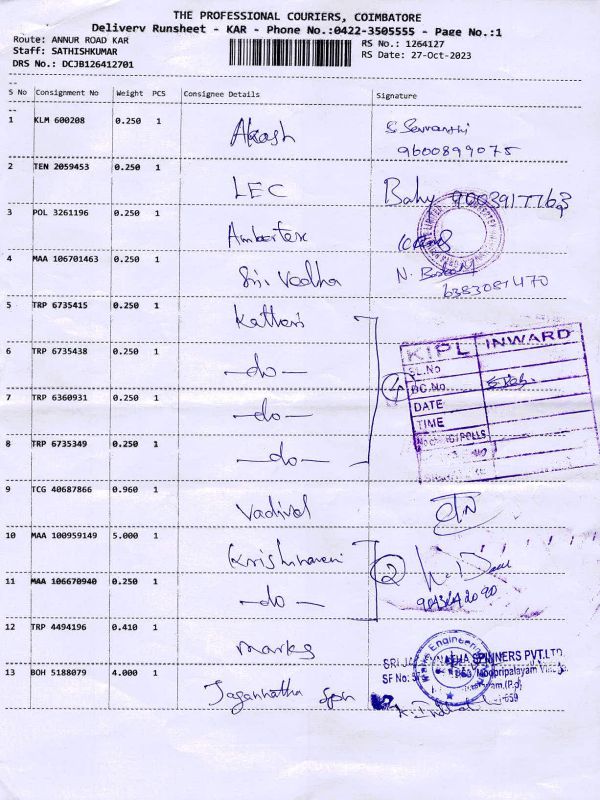 THE PROFESSIONAL COURIERS, COIMBATORE
Delivery Runsheet - KAR - Phone No.:0422-3505555 - Page No.:1
Route: ANNUR ROAD KAR
Staff: SATHISHKUMAR
DRS No.: DCJB126412701
RS No.: 1264127
RS Date: 27-Oct-2023
S No Consignment No Weight PCS Consignee Details Signature
1 KLM 600208 0.250 1 Akash
9600899075
2 TEN 2059453 0.250 1 LEC
3 POL 3261196 0.250 1 Ambertex
4 MAA 106701463 0.250 1 Sri Vedha
6383081470
5 TRP 6735415 0.250 1 Katheri
6 TRP 6735438 0.250 1 -do-
7 TRP 6360931 0.250 1 -do-
8 TRP 6735349 0.250 1 -do-
4
KIPL INWARD
SL.No
DC.No
DATE
TIME
9 TCG 40687866 0.960 1 Vadivel
10 MAA 100959149 5.000 1 Krishnaveni
11 MAA 106670940 0.250 1 -do-
2
12 TRP 4494196 0.410 1 marks
13 BOH 5188079 4.000 1 Jagannatha Spn
SPINNERS PVT.LTD.
SF No: